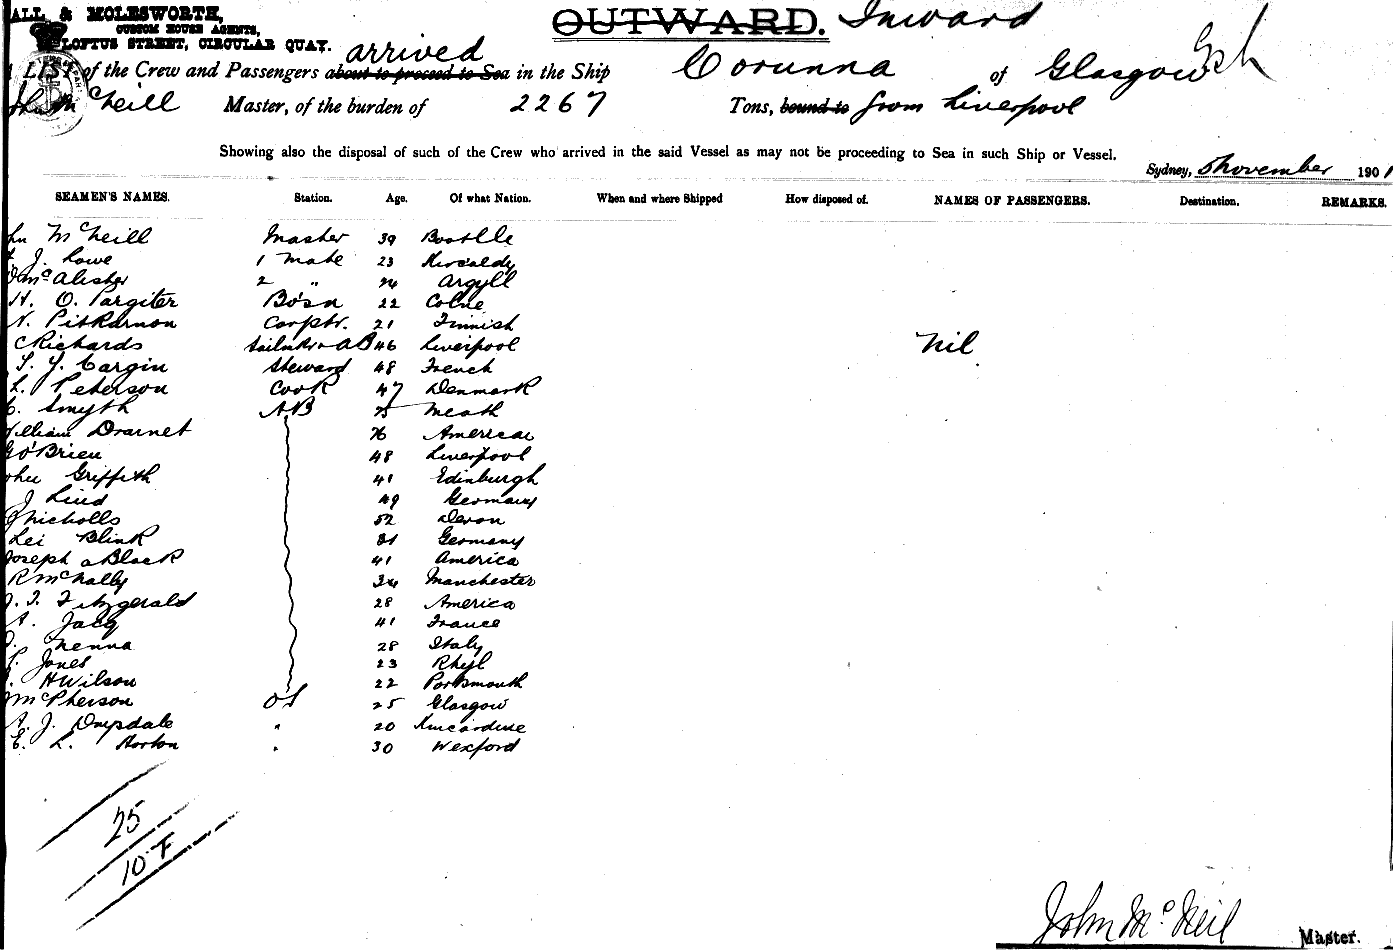 ALL & MOLESWORTH,
CUSTOM HOUSE AGENTS,
LOFTUS STREET, CIRCULAR QUAY.
OUTWARD. Inward
arrived
LIST of the Crew and Passengers about to proceed to Sea in the Ship Corunna of Glasgow
McNeill Master, of the burden of 2267 Tons, bound to from Liverpool
Showing also the disposal of such of the Crew who arrived in the said Vessel as may not be proceeding to Sea in such Ship or Vessel.
Sydney, 5 November 1901
SEAMEN'S NAMES. Station. Age. Of what Nation. When and where Shipped How disposed of. NAMES OF PASSENGERS. Destination. REMARKS.
hn McNeill Master 39 Bootlle
J. Lowe 1 Mate 23 Kircaldy
McAlister 2 " 24 Argyll
H. O. Pargiter Bo'sn 22 Colne
N. Pitkarnon Carptr. 21 Finnish
C Richards Sailmkr & AB 46 Liverpool
Nil
T. Y. Cargin Steward 48 French
L. Peterson Cook 47 Denmark
C. Smyth AB Meath
William Drarnet 76 American
G O'Brien 48 Liverpool
ohn Griffith 41 Edinburgh
J Lind 49 Germany
Nicholls 52 Devon
Lei Blink 31 Germany
Joseph a Black 41 America
R McNally 34 Manchester
J. Fitzgerald 28 America
A. Jacq 41 France
Nenna 28 Italy
P. Jones 23 Rhyl
H Wilson 22 Portsmouth
McPherson OS 25 Glasgow
A. J. Drysdale " 20 Kincardine
E. L. Horton " 30 Wexford
25
10 F
John McNeil Master.